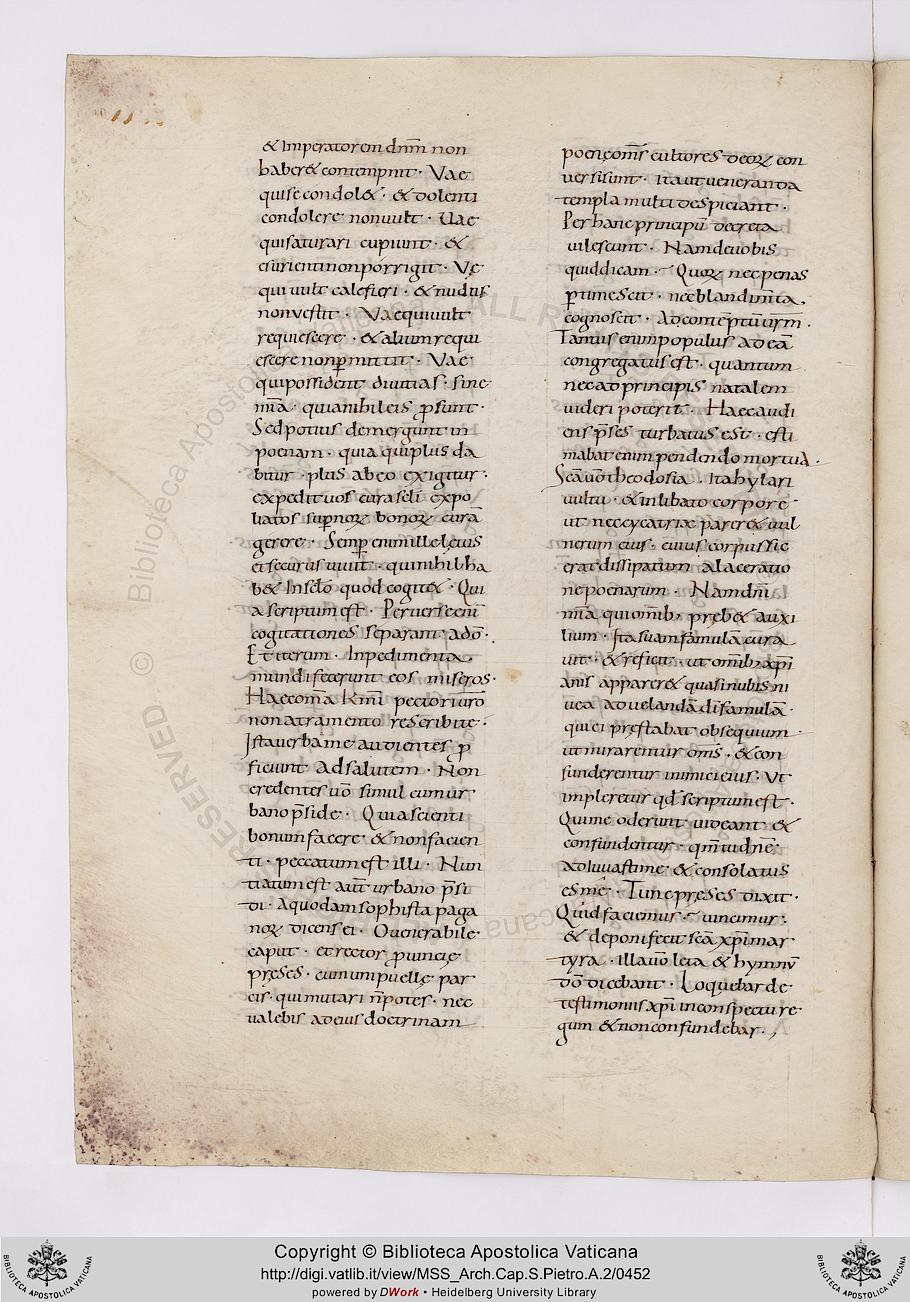 & Imperatorem dnm̄ non
haber& contempnit · Vae
qui se condol& · & dolenti
condolere non uult · Uae
qui saturari cupiunt · &
esurienti non porrigit · Vę
qui uult calefieri · & nudus
non uestit · Vae qui uult
requiescere · & alium requi
escere non ꝑmittit · Vae
qui possident diuitias · sine
mīa · quia nihil eis ꝓsunt ·
Sed potius demergunt in
poenam · quia qui plus da
bitur · plus ab eo exigitur ·
expedit uos cura scłi expo
liatos suꝑnoꝝ bonoꝝ curā
gerere · Semꝑ enim ille lęuis
et securus uiuit · qui nihil ha
b& In sclo quod cogitet · Qui
a scriptum est · Peruerse enī
cogitationes separant a dō ·
Et iterum · Inpedimenta
mundi fecerunt eos miseros ·
Haec om̄a kmi pectori uro
non atramento rescribite ·
Ista uerba me audientes ꝓ
ficiunt ad salutem · Non
credentes uō simul cum ur
bano p̄side · Quia scienti
bonum facere & non facien
ti · peccatum est illi · Nun
tiatum est aut̄ urbano p̄si
di · A quodam sophista paga
noꝝ dicens ei · O uenerabile
caput · et rector ꝓuincię
pręses · cum unī puellę par
cis · qui mutari n̄ potes · nec
ualebis ad eius doctrinam
poenę om̄s cultores deoꝝ con
uersi sunt · ita ut ueneranda
templa multi despiciant ·
Per hanc principū decreta
uilescunt · Nam de uobis
quid dicam · Quoꝝ nec penas
ꝑtimescit · nec blandim̄ta
cognoscit · Ad contēptū urm̄ ·
Tantus enim populus ad eā
congregatus est · quantum
nec ad principis natalem
uideri poterit · Haec audi
ens p̄ses turbatus est · esti
mabat enim pendendo mortua ·
Scā uō theodosia · Ita hylari
uultu · & inlibato corpore
ut nec cycatrix parer& uul
nerum eius · cuius corpus sic
erat dissipatum a laceratio
ne poenarum · Nam dnī
mīa qui omīb; pręb& auxi
lium · Ita suam famulā cura
uit · & refecit · ut omīb; xp̄i
anis apparer& quasi nubis ni
uea ad uelandā di famulā ·
qui ei pręstabat obsequium ·
ut mirarentur om̄s · & con
funderentur inimici eius · Ut
impleretur qd̄ scriptum est ·
Qui me oderunt uideant &
confundentur · qm̄ tu dn̄e
adiuuasti me · & consolatus
es me · Tunc pręses dixit ·
Quid faciemus · uincimur ·
& deponi fecit scā xp̄i mar
tyra · illa uō leta & hymnū
dō dicebant · Loquebar de
testimoniis xp̄i in conspectu re
gum & non confundebar ·
Copyright © Biblioteca Apostolica Vaticana
http://digi.vatlib.it/view/MSS_Arch.Cap.S.Pietro.A.2/0452
powered by DWork • Heidelberg University Library